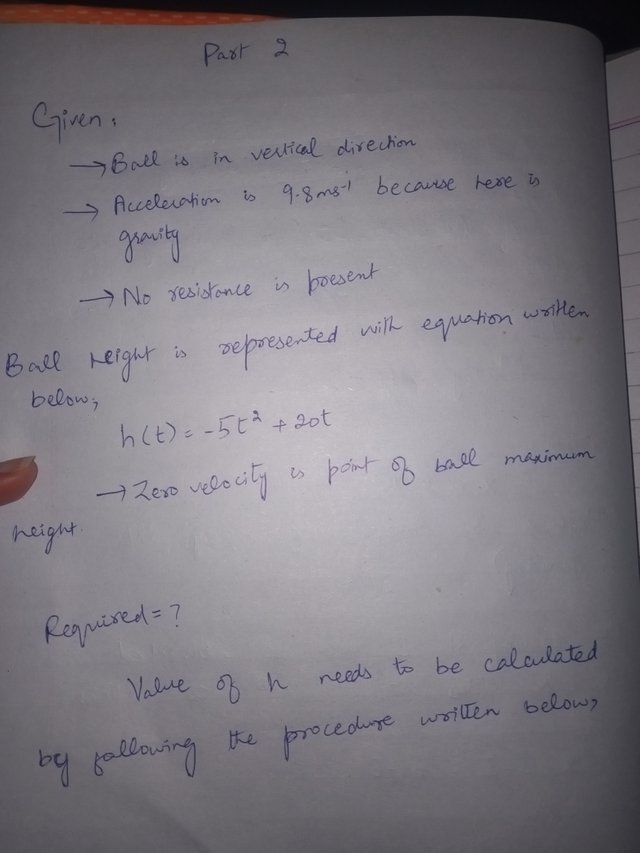 Part 2
Given:
→ Ball is in vertical direction
→ Acceleration is 9.8ms⁻¹ because here is
gravity
→ No resistance is present
Ball height is represented with equation written
below;
h(t) = -5t² + 20t
→ Zero velocity is point of ball maximum
height.
Required = ?
Value of h needs to be calculated
by following the procedure written below,